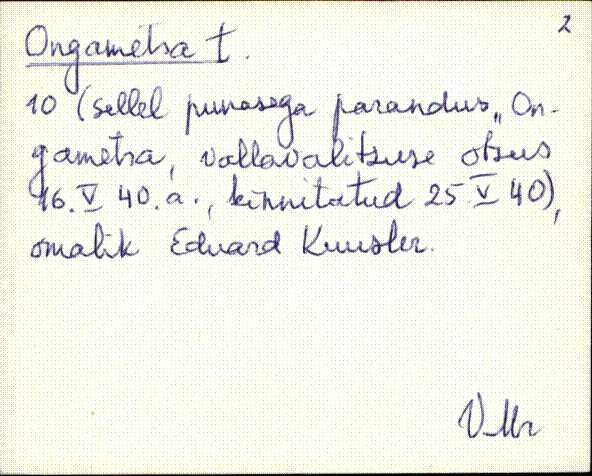 2
Ongamétsa t.
10 (sellel punasega parandus „On-
gametsa, vallavalitsuse otsus
16. V 40. a., kinnitatud 25 V 40),
omanik Eduard Kuusler.